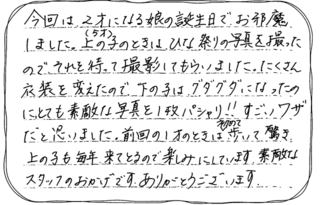 今回は2才になる娘の誕生日でお邪魔
しました。上の子(5才)のときはひな祭りの写真を撮った
のでそれを持って撮影してもらいました。たくさん
衣装を変えたので下の子はグダグダになったの
にとても素敵な写真を1枚パシャリ!!すごいワザ
だと思いました。前回の1才のときは初めて歩いて驚き
上の子も毎年来てとるので楽しみにしています。素敵な
スタッフのおかげです。ありがとうございます。